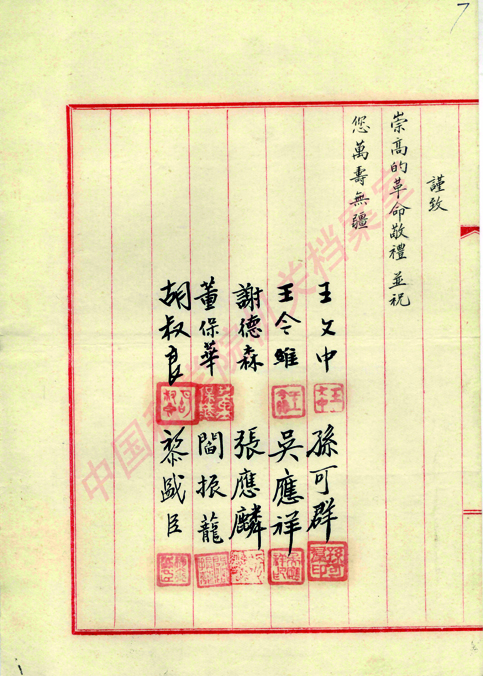 7
謹致
崇高的革命敬禮 並祝
您萬壽無疆
王文中 孫可群
王令雖 吳應祥
謝德森 張應麟
董保華 閻振龍
胡叔良 黎盛臣
中国科学院机关档案室